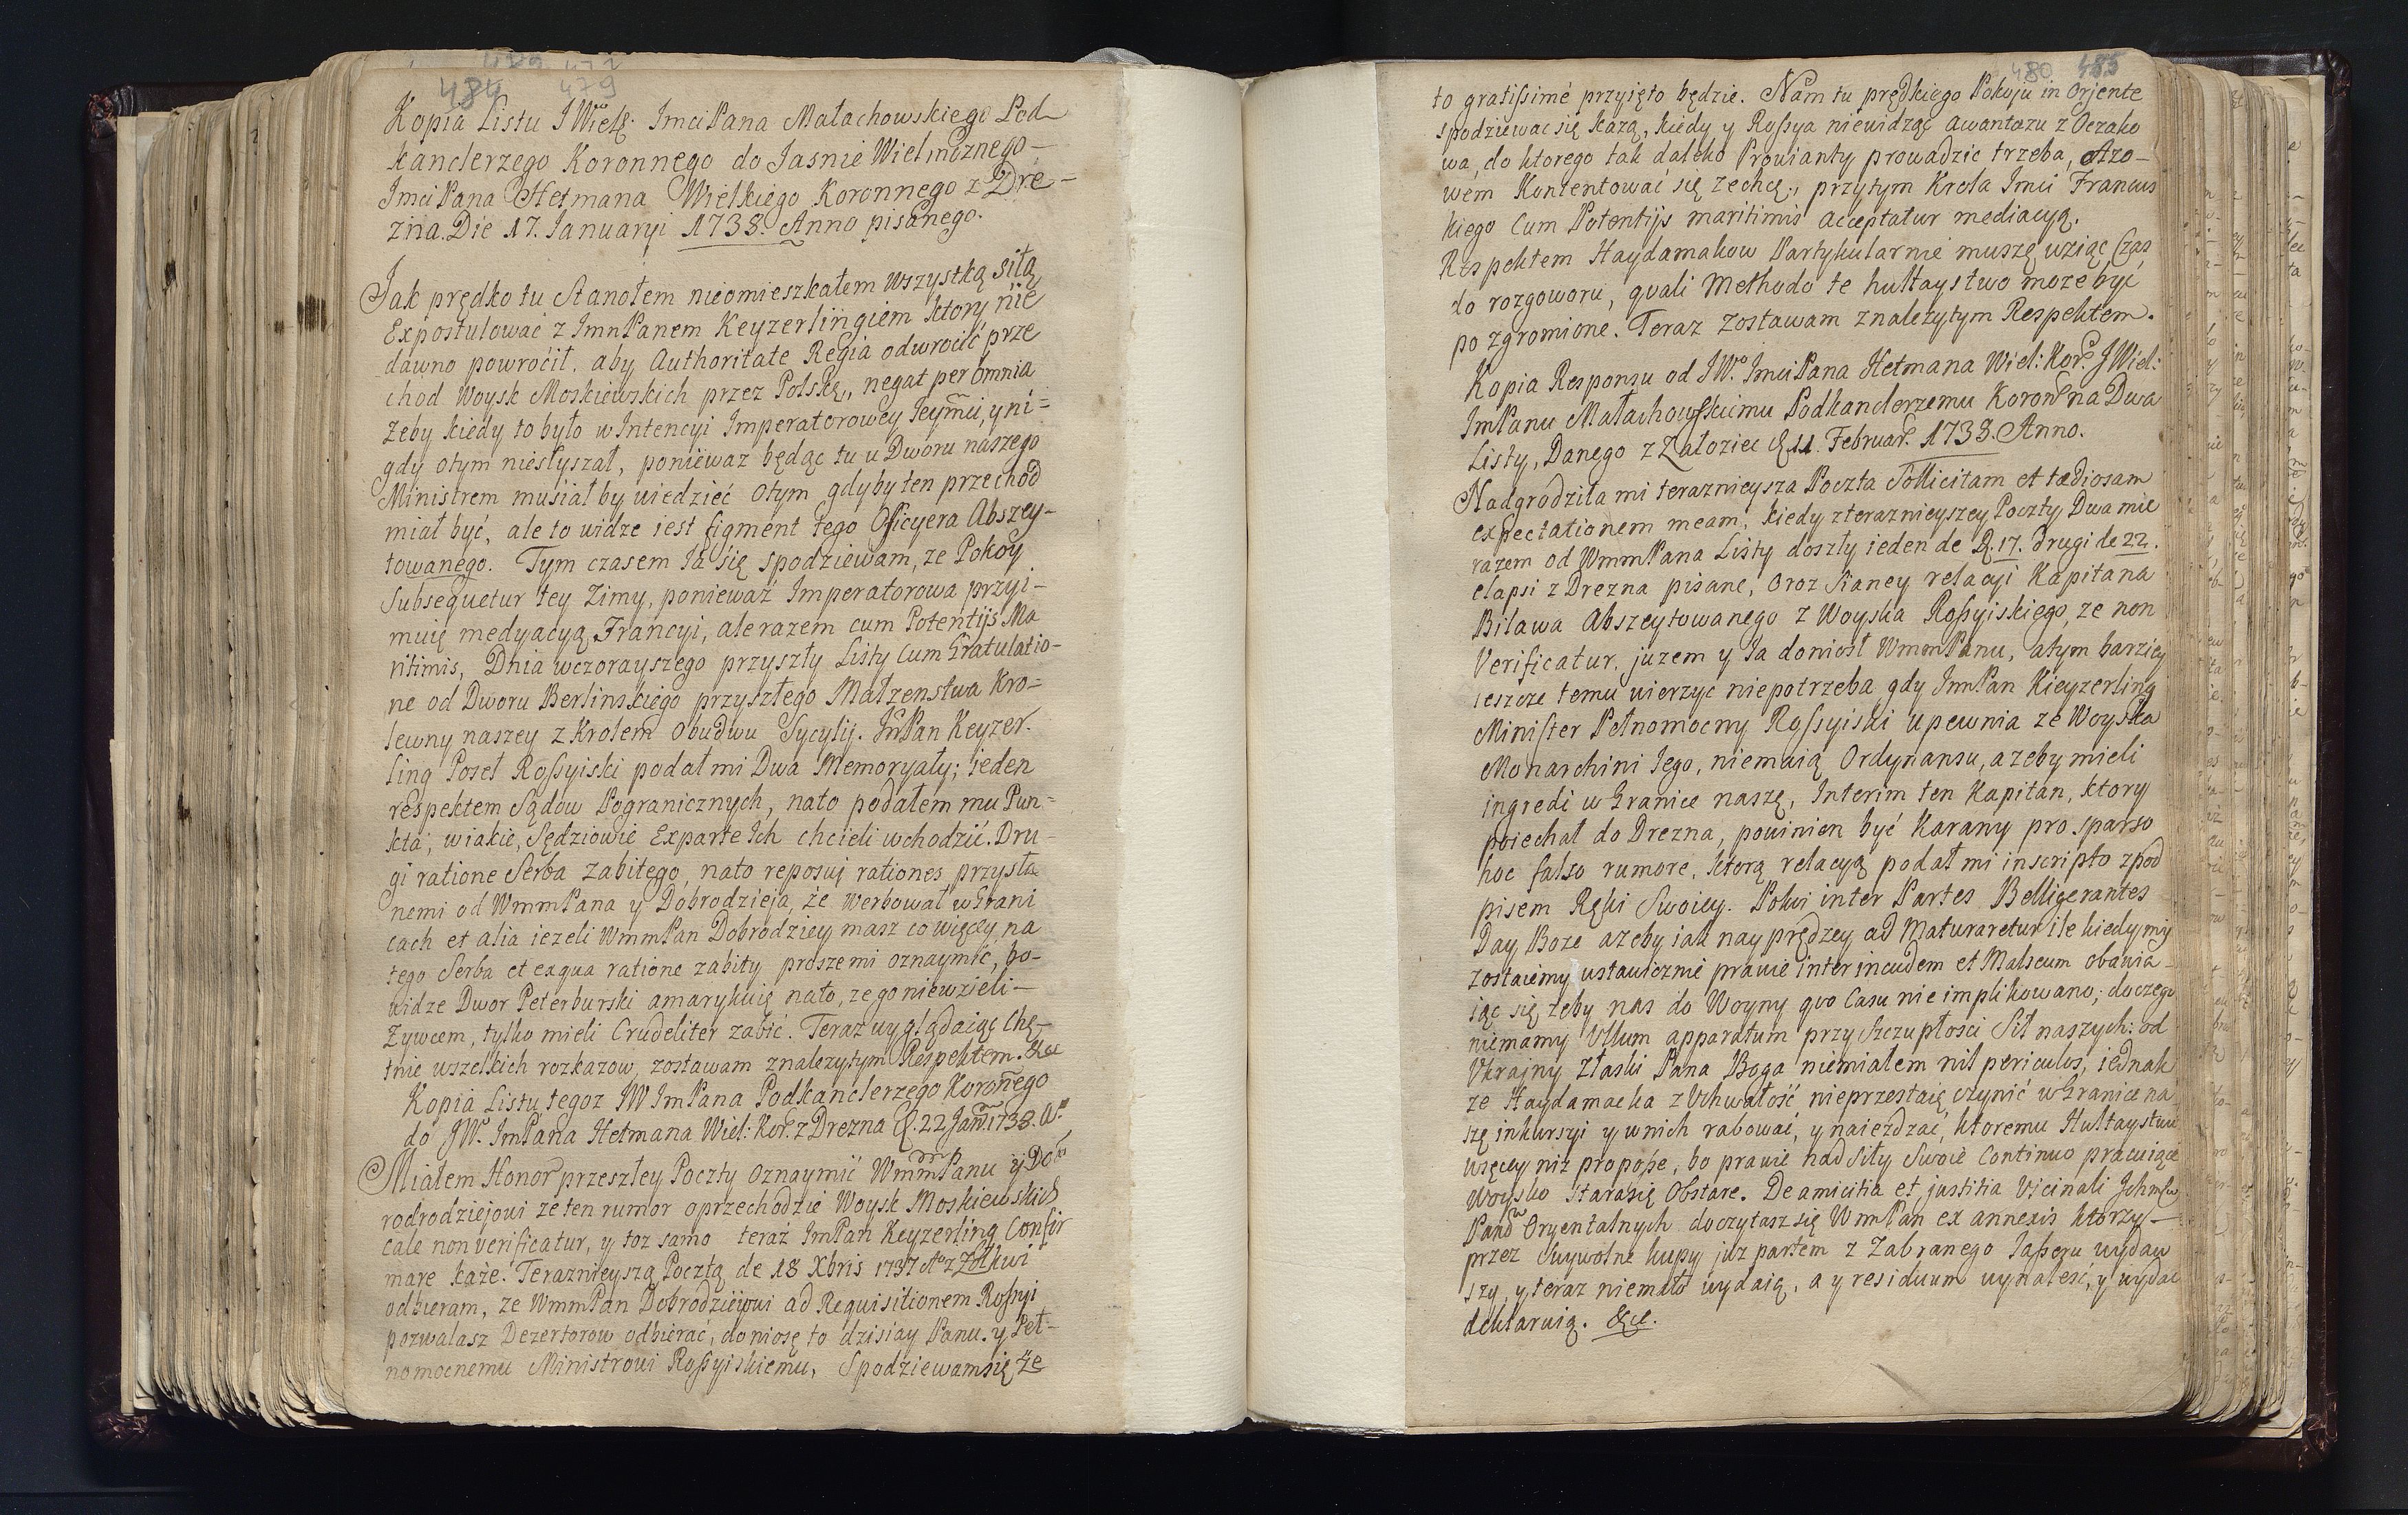 484 479
Kopia Listu J Wielg. Imci Pana Małachowskiego Pod
kanclerzego Koronnego do Jasnie Wielmoznego
Imci Pana Hetmana Wielkiego Koronnego z Dre-
zna. Die 17. Ianuaryi 1738. Anno pisanego.
Jak prędko tu Stanołem nieomieszkałem wszystką siłą
Expostulować z ImnPanem Keyzerlingiem ktory nie
dawno powroćił, aby Authoritate Regia odwroćić prze
chod Woysk Moskiewskich przez Polskę, negat per omnia
żeby kiedy to było w Intencyi Imperatorowey Ieymći, y ni=
gdy otym niesłyszał, ponieważ będąc tu u Dworu naszego
Ministrem musiałby wiedzieć otym gdyby ten przechod
miał być, ale to widze iest figment tego Officyera Abszey-
towanego. Tym czasem Ia się spodziewam, ze Pokoy
Subsequetur tey Zimy, ponieważ Imperatorowa przyi-
muię medyacyą Francyi, ale razem cum Potentijs Ma
ritimis, Dnia wczorayszego przyszły Listy Cum Gratulatio-
ne od Dworu Berlinskiego przyszłego Małzenstwa Kro=
lewny naszey z Krolem Obudwu Sycylij. ImPan Keyzer-
ling Poseł Rossyiski podał mi Dwa Memoryały; ieden
respektem Sądow Pogranicznych, nato podałem mu Pun=
kta, w iakie, Sędziowie Exparte Ich chcieli wchodzić. Dru-
gi ratione Serba zabitego, nato reposuj rationes przysła
nemi od WmmPana y Dobrodzieja, że werbował w Grani
cach et alia iezeli WmmPan Dobrodziey masz co więcey na
tego Serba et ex qua ratione zabity proszemi oznaymić, bo-
widze Dwor Peterburski amarykuię nato, ze go niewzieli-
Zywcem, tylko mieli Crudeliter zabić. Teraz wyglądaiąc Chę-
tnie wszelkich rozkazow, zostawam znalezytym Respektem. &c
Kopia Listu tegoz JW ImPana Podkanclerzego Koronnego
do JW. ImPana Hetmana Wiel: Kor. z Drezna D. 22 Jan. 1738. A.
Miałem Honor przeszłey Poczty oznaymić WmmPanu y Dob
rodrodziejowi ze ten rumor oprzechodzie Woysk Moskiewskich
cale non verificatur, y toz samo teraz ImPan Keyzerling Confir
mare każe. Teraznieyszą Pocztą de 18 Xbris 1737 Ao z Zołkwi
odbieram, ze WmmPan Dobrodziejowi ad Requisitionem Rossyi
pozwalasz Dezertorow odbierać, doniosę to dzisiay Panu. y Peł-
nomocnemu Ministrowi Rossyiskiemu, Spodziewam się że
480 485
to gratissimé przyięto będzie. Nam tu prędkiego Pokoju in Orjente
spodziewac się każą, kiedy y Rossya niewidząc awantazu z Oczako
wa, do ktorego tak daleko Prowianty prowadzic trzeba, Azo-
wem Kontentować się zechcę, przytym Krola Imci Francus
kiego Cum Potentijs maritimis acceptatur mediacyą.
Respektem Haydamakow Partykularnie muszę uziąc Czas
do rozgoworu, quali Methodo te hultaystwo moze być
po zgromione. Teraz zostawam znalezytym Respektem.
Kopia Responsu od JWo. Imci Pana Hetmana Wiel: Kor. J Wiel:
ImPanu Małachowskiemu Podkanclerzemu Koron na Dwa
Listy, Danego z Załoziec D. 11. Februar. 1738. Anno.
Nadgrodziła mi teraznieysza Poczta Sollicitam et tædiosam
expectationem meam, kiedy z teraznieyszey Poczty Dwa mie
razem od WmmPana Listy doszły ieden de D. 17. drugi de 22.
elapsi z Drezna pisane, Oraz Sianey relacyi Kapitana
Bilawa Abszeytowanego z Woyska Rossyiskiego, ze non
Verificatur, juzem y Ia doniosł WmmPanu, atym barziey
ieszcze temu wierzyc niepotrzeba gdy ImPan Kieyzerling
Minister Pełnomocny Rossyiski upewnia ze Woyska
Monarchini Iego, niemaią Ordynansu, azeby mieli
ingredi w Granice naszę, Interim ten Kapitan, ktory
poiechał do Drezna, powinien być Karany pro sparso
hoc falso rumore, ktorą relacyą podał mi inscripto zpod
pisem Ręki Swoiey. Pokoi inter Partes Belligerantes
Day Boze azeby iak nayprędzey ad Maturaretur ile kiedy my
zostaiemy ustawicznie prawie inter incudem et Malleum obawia
iąc się żeby nas do Woyny quo Casu nie implikowano; do czego
niemamy Ullum apparatum przy szczupłosci Sił naszych: od
Ukrainy Złaski Pana Boga niemiałem nil periculos, iednak
ze Haydamacka Zuchwałość nieprzestaię czynić w Granice na
szę inkursyi y w nich rabować, y naiezdzać, ktoremu Hultaystwu
więcey niz proposse, bo prawie nad Siły Swoie Continuo pracuiące
Woysko Starasię Obstare. De amicitia et justitia Vicinali Ichmsw
Panow Oryentalnych doczytasz się WmmPan ex annexis ktorzy-
przez Swywolne kupy juz partem z Zabranego Iassyru wydaw
szy, y teraz niemało wydaią, a y residuum wynaleść, y wydac
deklaruią. &c.